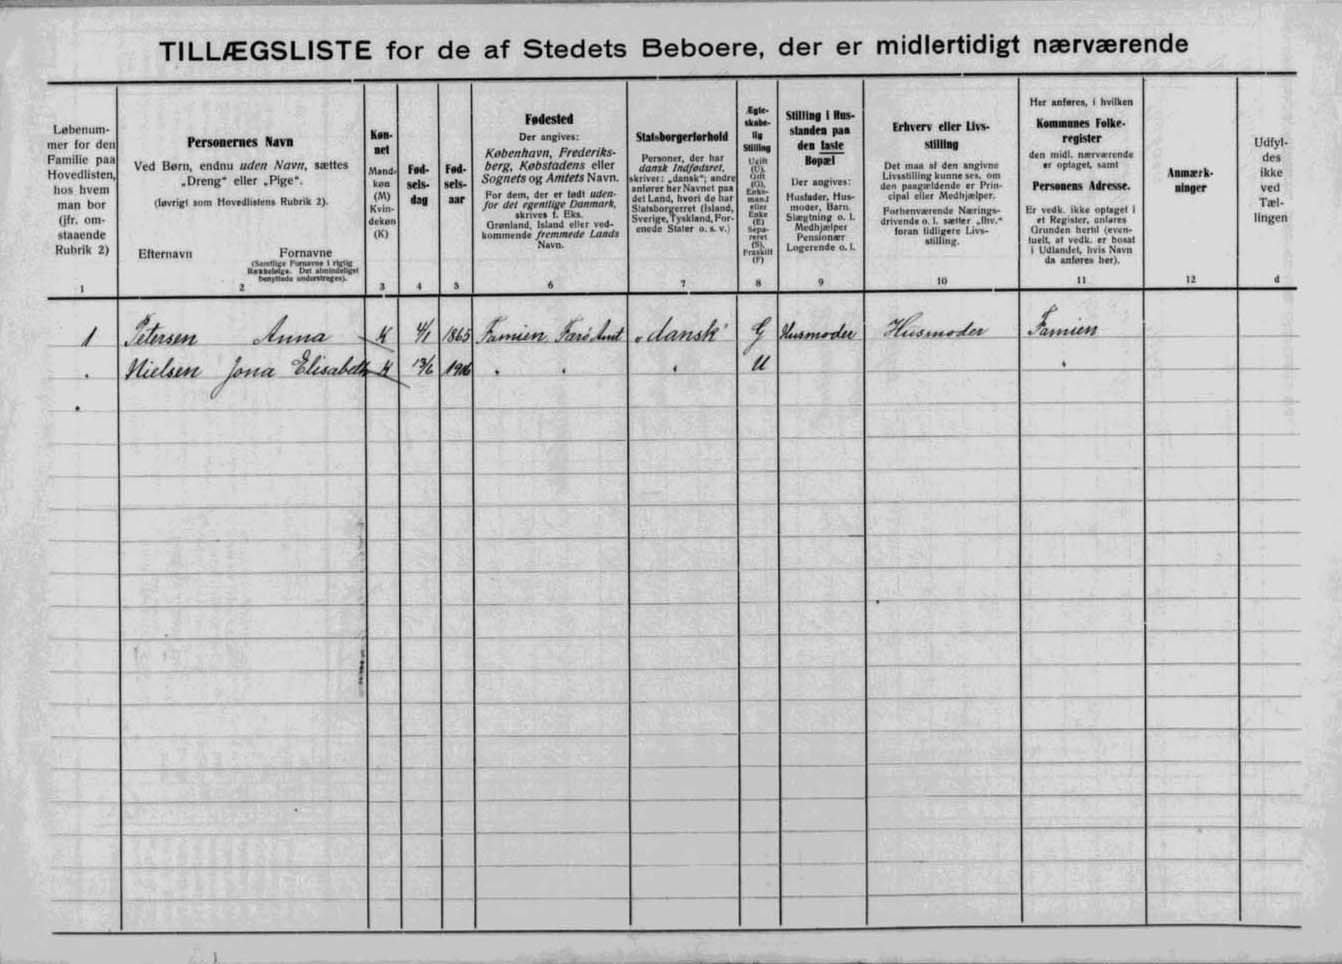 TILLÆGSLISTE for de af Stedets Beboere, der er midlertidigt nærværende
Løbenum-
mer for den
Familie paa
Hovedlisten,
hos hvem
man bor
(jfr. om-
staaende
Rubrik 2)
1
Personernes Navn
Ved Børn, endnu uden Navn, sættes
„Dreng“ eller „Pige“.
(Iøvrigt som Hovedlistens Rubrik 2).
Efternavn Fornavne
(Samtlige Fornavne i rigtig
Rækkefølge. Det almindeligst
benyttede understreges).
2
Køn-
net
Mand-
køn
(M)
Kvin-
dekøn
(K)
3
Fød-
sels-
dag
4
Fød-
sels-
aar
5
Fødested
Der angives:
København, Frederiks-
berg, Købstadens eller
Sognets og Amtets Navn.
For dem, der er født uden-
for det egentlige Danmark,
skrives f. Eks.
Grønland, Island eller ved-
kommende fremmede Lands
Navn.
6
Statsborgerforhold
Personer, der har
dansk Indfødsret,
skriver: „dansk“; andre
anfører her Navnet paa
det Land, hvori de har
Statsborgerret (Island,
Sverige, Tyskland, For-
enede Stater o. s. v.)
7
Ægte-
skabe-
lig
Stilling
Ugift
(U),
Gift
(G),
Enke-
mand
eller
Enke
(E)
Sepa-
reret
(S),
Fraskilt
(F)
8
Stilling i Hus-
standen paa
den faste
Bopæl
Der angives:
Husfader, Hus-
moder, Barn,
Slægtning o. l.
Medhjælper
Pensionær
Logerende o. l.
9
Erhverv eller Livs-
stilling
Det maa af den angivne
Livsstilling kunne ses, om
den paagældende er Prin-
cipal eller Medhjælper.
Forhenværende Nærings-
drivende o. l. sætter „fhv.“
foran tidligere Livs-
stilling.
10
Her anføres, i hvilken
Kommunes Folke-
register
den midl. nærværende
er optaget, samt
Personens Adresse.
Er vedk. ikke optaget i
et Register, anføres
Grunden hertil (even-
tuelt, at vedk. er bosat
i Udlandet, hvis Navn
da anføres her).
11
Anmærk-
ninger
12
Udfyl-
des
ikke
ved
Tæl-
lingen
d
1 Petersen Anna K 4/1 1865 Famien Færö Amt „dansk“ G Husmoder Husmoder Famien
" Nielsen Jona Elisabeth K 13/6 1916 " " " U "
"